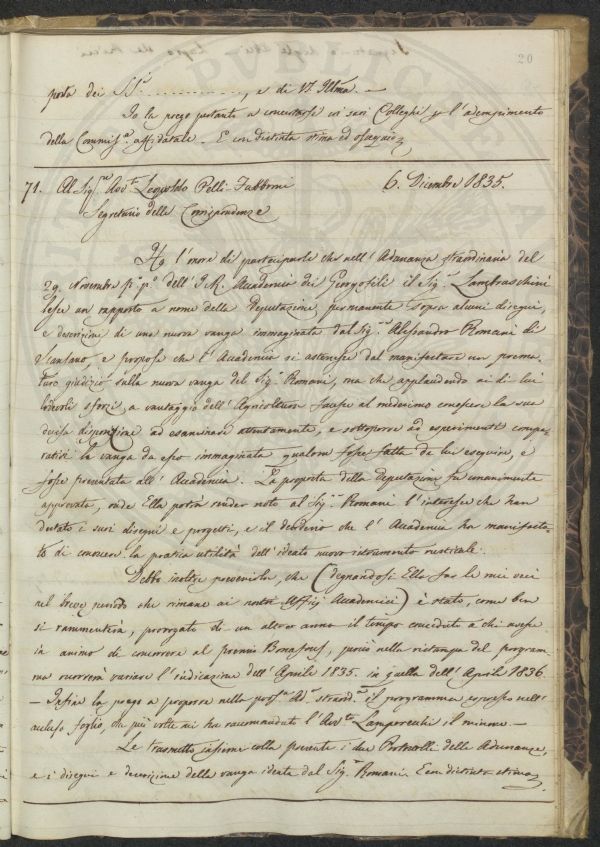 20
posta dei SS.i . . . . . . . . . . , e di VS. Illma. —
Io la prego pertanto a concertarsi coi suoi Colleghi p l'adempimento
della Commiss.e affidatale. E con distinta stima ed ossequio
71. Al Sig.re Avv.to Leopoldo Pelli-Fabbroni 6. Dicembre 1835.
Segretario delle Corrispondenze
Ho l'onore di parteciparle che nell'Adunanza straordinaria del
29. Novembre p.o p.o dell'I. R. Accademia dei Georgofili il Sig.r Lambruschini
lesse un rapporto a nome della Deputazione permanente sopra alcuni disegni,
e descrizione di una nuova vanga immaginata dal Sig.r Alessandro Romani di
, e propose che l'Accademia si astenesse dal manifestare un prema-
turo giudizio sulla nuova vanga del Sig.r Romani, ma che applaudendo ai di lui
lodevoli sforzi, a vantaggio dell'Agricoltura facesse al medesimo conoscere la sua
decisa disposizione ad esaminare attentamente, e sottoporre ad esperimenti compa-
rativi la vanga da esso immaginata qualora fosse fatta da lui eseguire, e
fosse presentata all'Accademia. La proposta della Deputazione fu unanimemente
approvata, onde Ella potrà render noto al Sig.r Romani l'interesse che han
destato i suoi disegni e progetti, e il desiderio che l'Accademia ha manifesta-
to di conoscer la pratica utilità dell'ideato nuovo istrumento rusticale.
Debbo inoltre prevenirla, che (degnandosi Ella far le mie veci
nel breve periodo che rimane ai nostri Uffizj Accademici) è stato, come ben
si rammenterà, prorogato di un altro anno il tempo conceduto a chi avesse
in animo di concorrere al premio Bonafous, perciò nella ristampa del program-
ma occorrerà variare l'indicazione dell'Aprile 1835. in quella dell'Aprile 1836.
— Infine la prego a proporre nella pross.a Ad.a straord.a il programma espresso nell'
accluso foglio, che più volte mi ha raccomandato l'Avv.to Lamporecchi il minore. —
Le trasmetto insieme colla presente i due Protocolli delle Adunanze,
e i disegni e descrizione della vanga ideata dal Sig.r Romani. E con distinta stima